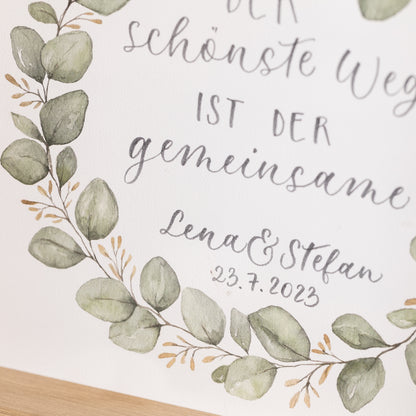 DER
schönste Weg
IST DER
gemeinsame
Lena & Stefan
23.7.2023